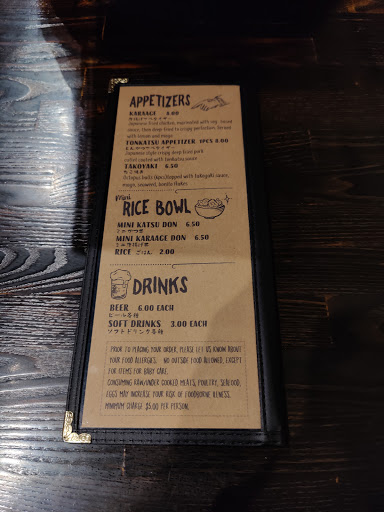 APPETIZERS
KARAAGE 8.00
Japanese fried chicken, marinated with soy based
sauce, then deep fried to crispy perfection. Served
with lemon and mayo
TONKATSU APPETIZER 1PCS 8.00
Japanese style crispy deep fried pork
cutlet coated with tonkatsu sauce
TAKOYAKI 6.50
Octopus balls (6pcs) topped with takoyaki sauce,
mayo, seaweed, bonito flakes
Mini
RICE BOWL
MINI KATSU DON 6.50
ミニカツ丼
MINI KARAAGE DON 6.50
ミニ唐揚げ丼
RICE ごはん 2.00
DRINKS
BEER 6.00 EACH
ビール各種
SOFT DRINKS 3.00 EACH
ソフトドリンク各種
PRIOR TO PLACING YOUR ORDER, PLEASE LET US KNOW ABOUT
YOUR FOOD ALLERGIES. NO OUTSIDE FOOD ALLOWED, EXCEPT
FOR ITEMS FOR BABY CARE.
CONSUMING RAW/UNDER COOKED MEATS, POULTRY, SEAFOOD,
EGGS MAY INCREASE YOUR RISK OF FOODBORNE ILLNESS.
MINIMUM CHARGE $5.00 PER PERSON.